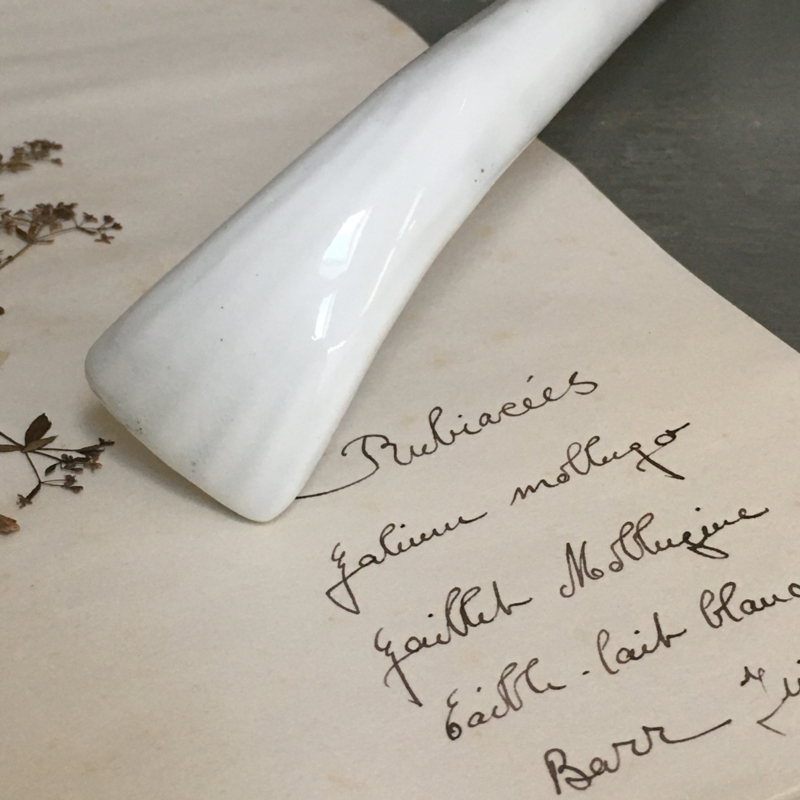 Rubiacées
Galium mollugo
Gaillet Mollugine
Caille-lait blanc
Barr